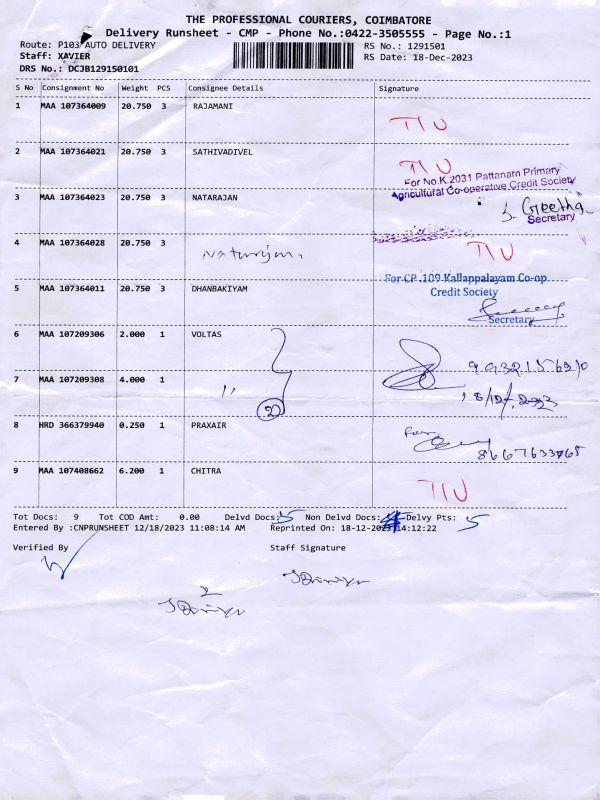 THE PROFESSIONAL COURIERS, COIMBATORE
Delivery Runsheet - CMP - Phone No.:0422-3505555 - Page No.:1
Route: P103 AUTO DELIVERY RS No.: 1291501
Staff: XAVIER RS Date: 18-Dec-2023
DRS No.: DCJB129150101
S No Consignment No Weight PCS Consignee Details Signature
1 MAA 107364009 20.750 3 RAJAMANI
TIU
2 MAA 107364021 20.750 3 SATHIVADIVEL TIU
For No.K.2031 Pattanam Primary
Agricultural Co-operative Credit Society
3 MAA 107364023 20.750 3 NATARAJAN
S. Geetha
Secretary
4 MAA 107364028 20.750 3 TIU
5 MAA 107364011 20.750 3 DHANBAKIYAM
For CP.109.Kallappalayam Co-op
Credit Society
Secretary
6 MAA 107209306 2.000 1 VOLTAS
7 MAA 107209308 4.000 1 〃 2
18/12/2023
8 HRD 366379940 0.250 1 PRAXAIR
for
8667633768
9 MAA 107408662 6.200 1 CHITRA
TIU
Tot Docs: 9 Tot COD Amt: 0.00 Delvd Docs: 5 Non Delvd Docs: 4 Delvy Pts: 5
Entered By :CNPRUNSHEET 12/18/2023 11:08:14 AM Reprinted On: 18-12-2023 14:12:22
Verified By Staff Signature